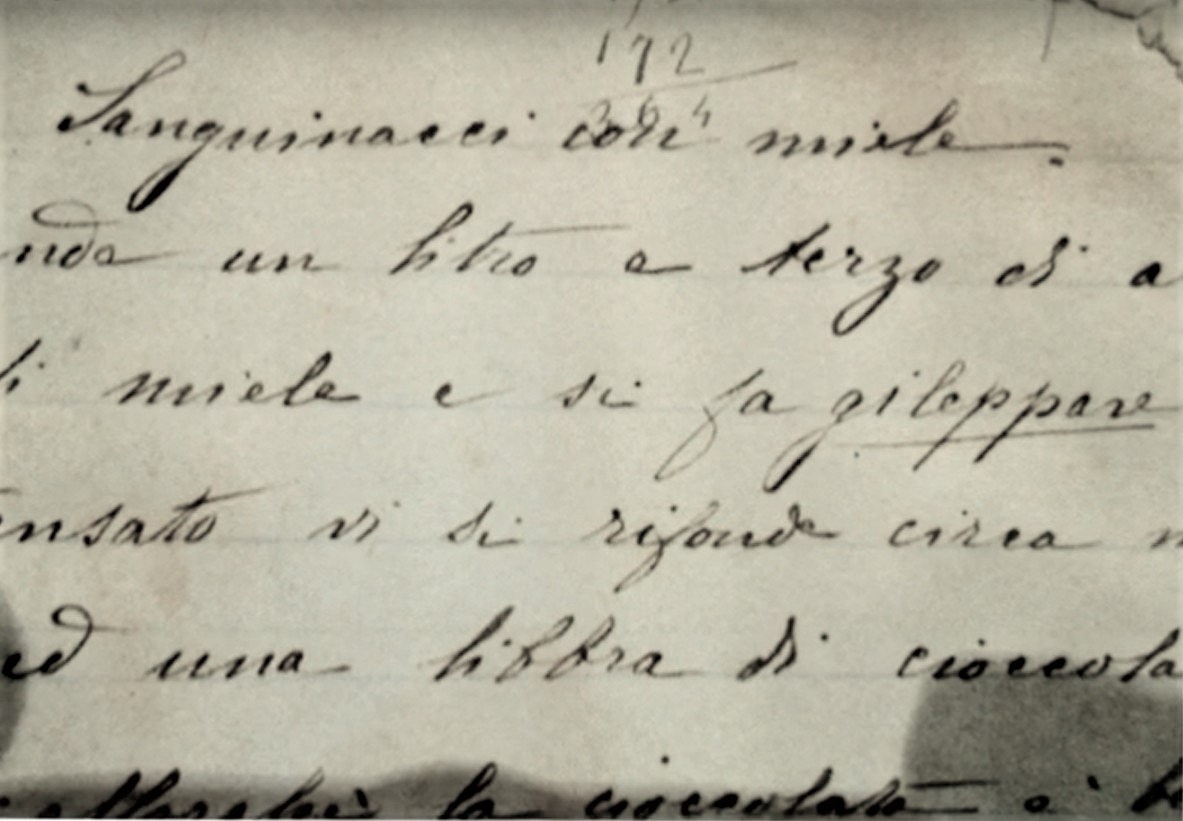 172
Sanguinacci con miele.
nde un litro e terzo di a
di miele e si fa gileppare
ensato vi si rifonde circa
ed una libbra di cioccola
la cioccolata è